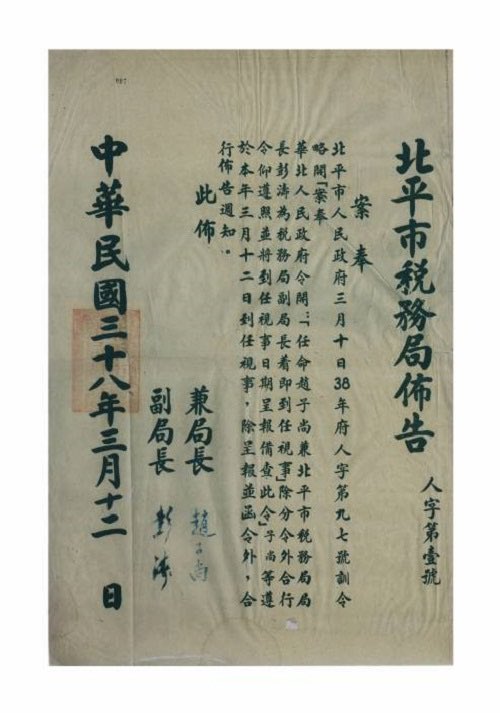 北平市稅務局佈告
人字第壹號
案奉
北平市人民政府三月十日38年府人字第九七號訓令
略開「案奉
華北人民政府令開：「任命趙子尚兼北平市稅務局局
長彭濤為稅務局副局長着即到任視事」除分令外合行
令仰遵照並將到任視事日期呈報備查此令」子尚等遵
於本年三月十二日到任視事，除呈報並函令外，合
行佈告週知。
此佈
兼局長 趙子尚
副局長 彭濤
中華民國三十八年三月十二日